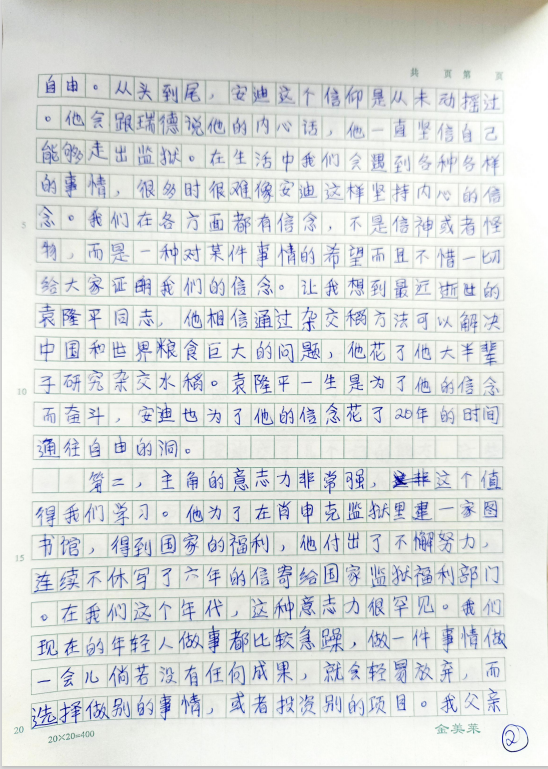 共 页 第 页
自由。从头到尾，安迪这个信仰是从未动摇过
。他会跟瑞德说他的内心话，他一直坚信自己
能够走出监狱。在生活中我们会遇到各种各样
的事情，很多时很难像安迪这样坚持内心的信
5 念。我们在各方面都有信念，不是信神或者怪
物，而是一种对某件事情的希望而且不惜一切
给大家证明我们的信念。让我想到最近逝世的
袁隆平同志，他相信通过杂交稻方法可以解决
中国和世界粮食巨大的问题，他花了他大半辈
10 子研究杂交水稻。袁隆平一生是为了他的信念
而奋斗，安迪也为了他的信念花了20年的时间
通往自由的洞。
第二，主角的意志力非常强，这个值
得我们学习。他为了在肖申克监狱里建一家图
15 书馆，得到国家的福利，他付出了不懈努力，
连续不休写了六年的信寄给国家监狱福利部门
。在我们这个年代，这种意志力很罕见。我们
现在的年轻人做事都比较急躁，做一件事情做
一会儿倘若没有任何成果，就会轻易放弃，而
20 选择做别的事情，或者投资别的项目。我父亲
20×20=400 金美莱 2